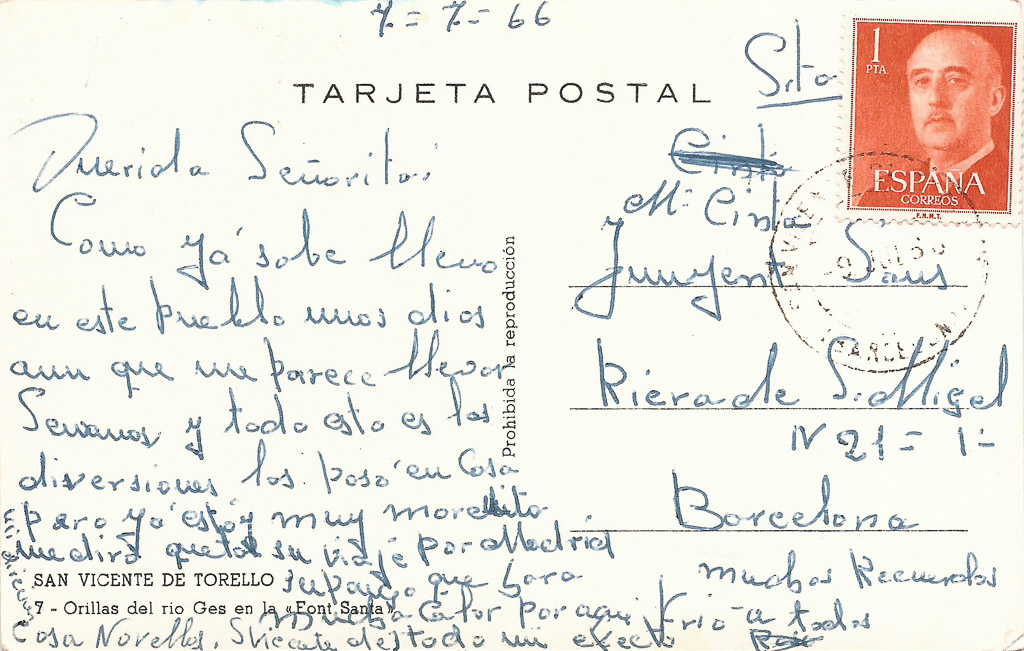 7-7-66
TARJETA POSTAL
Srta
1
PTA
ESPAÑA
CORREOS
F.N.M.T.
Querida Señorita:
Como ya sabe llevo
en este pueblo unos dias
aun que me parece llevar
Semanas y todo esto es las
diversiones las paso en Casa
pero ya estoy muy morenito
me dira que tal su viaje por Madrid
supongo que hara
mucha Calor por aqui Frio
Prohibida la reproducción
SAN VICENTE DE TORELLO
7 - Orillas del rio Ges en la «Font Santa»
mi direcion
Casa Novellas, S Vicente
Mª Cinta
Junyent Sans
Riera de S. Migel
Nº 21 = 1-
Barcelona
muchos Recuerdos
a todos